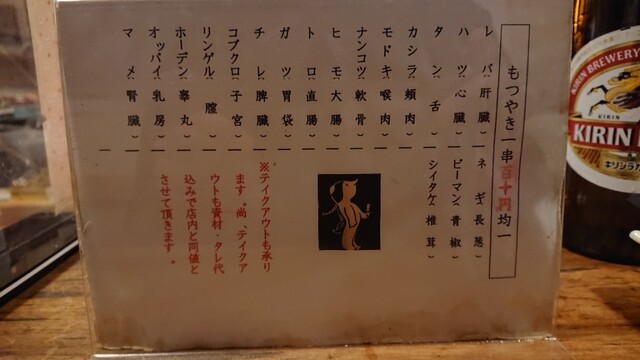 もつやき一串百十円均一
レバ（肝臓）
ハツ（心臓）
タン（舌）
カシラ（頬肉）
モドキ（喉肉）
ナンコツ（軟骨）
ヒモ（大腸）
トロ（直腸）
ガツ（胃袋）
チレ（脾臓）
コブクロ（子宮）
リンゲル（膣）
ホーデン（睾丸）
オッパイ（乳房）
マメ（腎臓）
ネギ（長葱）
ピーマン（青椒）
シイタケ（椎茸）
※テイクアウトも承り
ます。尚、テイクア
ウトも資材・タレ代
込みで店内と同値と
させて頂きます。
KIRIN BREWERY
KIRIN
KIRIN
キリンラガ